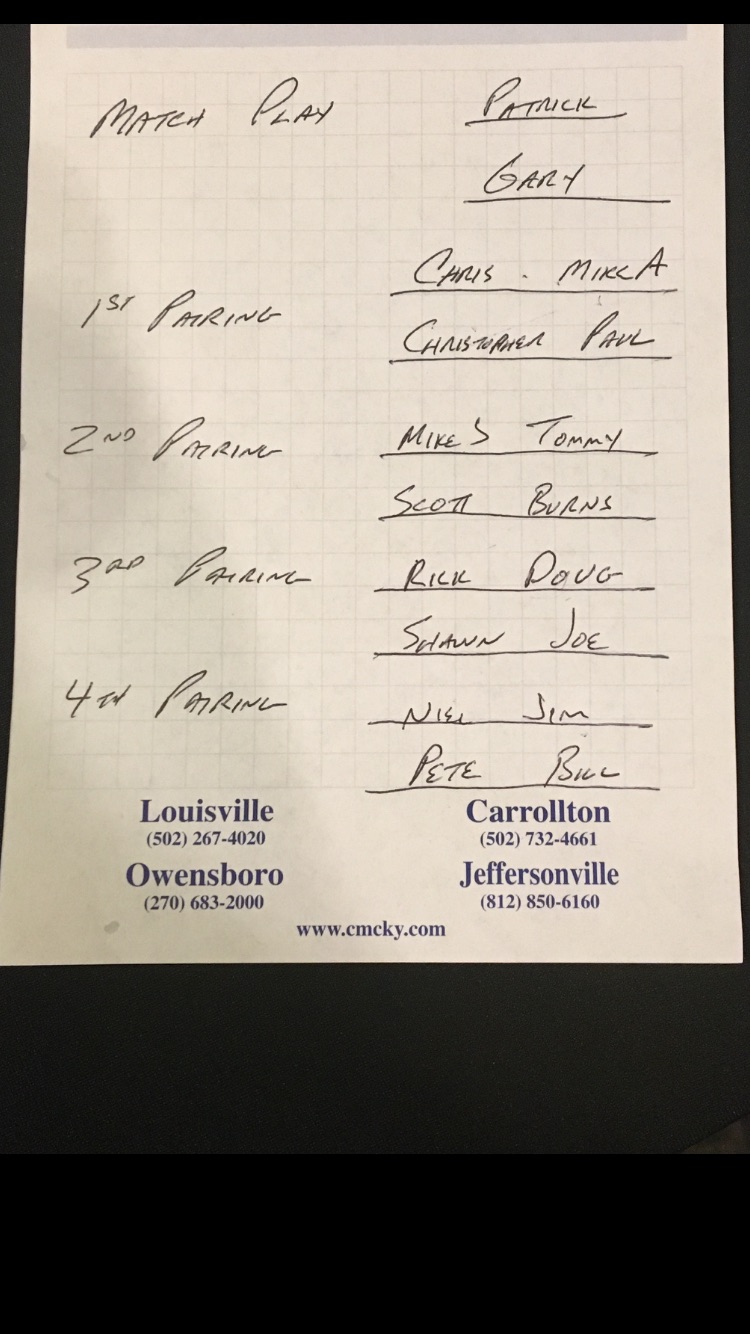 MATCH PLAY PATRICK
GARY
CHRIS . MIKE A
1ST PAIRING
CHRISTOPHER PAUL
2ND PAIRING MIKE S TOMMY
SCOTT BURNS
3RD PAIRING RICK DOUG
SHAWN JOE
4TH PAIRING NIEL JIM
PETE BILL
Louisville Carrollton
(502) 267-4020 (502) 732-4661
Owensboro Jeffersonville
(270) 683-2000 (812) 850-6160
www.cmcky.com